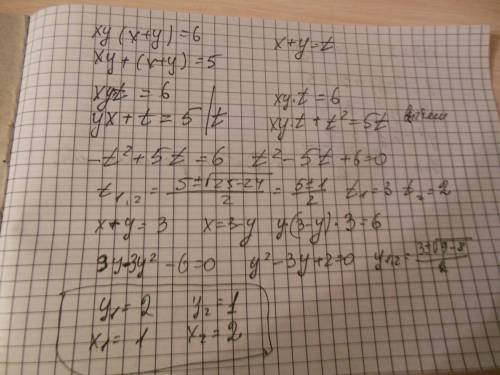 xy(x+y)=6
x+y=t
xy+(x+y)=5
xyt=6
xy·t=6
yx+t=5|t
xy·t+t²=5t
-t²+5t=6 t²-5t+6=0
t₁,₂=(5±√(25-24))/2=(5±1)/2 t₁=3 t₂=2
x+y=3 x=3-y y(3-y)·3=6
9y-3y²-6=0 y²-3y+2=0 y₁,₂=(3±√(9-8))/2
y₁=2 y₂=1
x₁=1 x₂=2